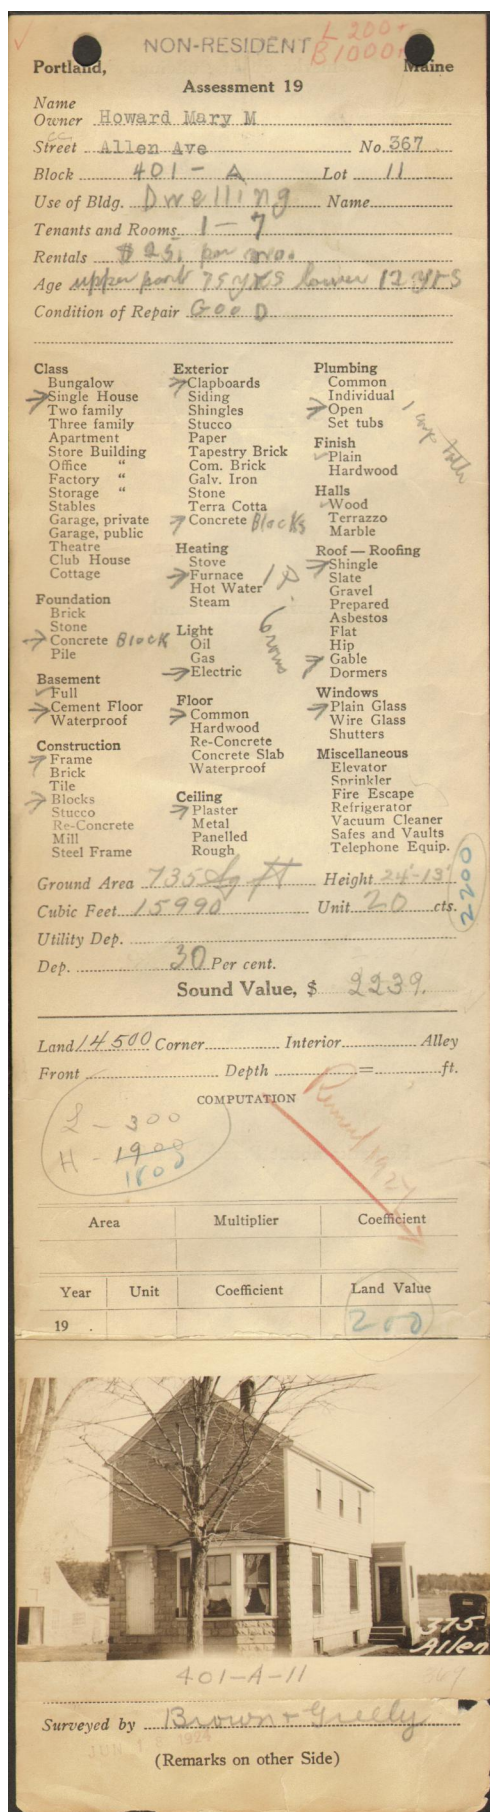 NON-RESIDENT
L 200+
B 1000+
Portland, Maine
Assessment 19
Name
Owner Howard Mary M
Street Allen Ave No. 367
Block 401 - A Lot 11
Use of Bldg. Dwelling Name
Tenants and Rooms 1 - 7
Rentals $25. per mo.
Age upper part 75 yrs lower 12 yrs
Condition of Repair Good
Class
Bungalow
Single House
Two family
Three family
Apartment
Store Building
Office "
Factory "
Storage "
Stables
Garage, private
Garage, public
Theatre
Club House
Cottage
Foundation
Brick
Stone
Concrete Block
Pile
Basement
Full
Cement Floor
Waterproof
Construction
Frame
Brick
Tile
Blocks
Stucco
Re-Concrete
Mill
Steel Frame
Exterior
Clapboards
Siding
Shingles
Stucco
Paper
Tapestry Brick
Com. Brick
Galv. Iron
Stone
Terra Cotta
Concrete Blocks
Heating
Stove
Furnace
Hot Water
Steam
Light
Oil
Gas
Electric
Floor
Common
Hardwood
Re-Concrete
Concrete Slab
Waterproof
Ceiling
Plaster
Metal
Panelled
Rough
Plumbing
Common
Individual
Open
Set tubs
Finish
Plain
Hardwood
Halls
Wood
Terrazzo
Marble
Roof — Roofing
Shingle
Slate
Gravel
Prepared
Asbestos
Flat
Hip
Gable
Dormers
Windows
Plain Glass
Wire Glass
Shutters
Miscellaneous
Elevator
Sprinkler
Fire Escape
Refrigerator
Vacuum Cleaner
Safes and Vaults
Telephone Equip.
2200
Ground Area 735 Sq ft Height 24'-13'
Cubic Feet 15990 Unit 20 cts.
Utility Dep.
Dep. 30 Per cent.
Sound Value, $ 2239.
Land 14500 Corner Interior Alley
Front Depth = ft.
COMPUTATION
L - 300
H - 1900
1800
1927
Area Multiplier Coefficient
Year Unit Coefficient Land Value
19 . 200
375
Allen
401-A-11
367
Surveyed by Brown & Greely
JUN 1924
(Remarks on other Side)